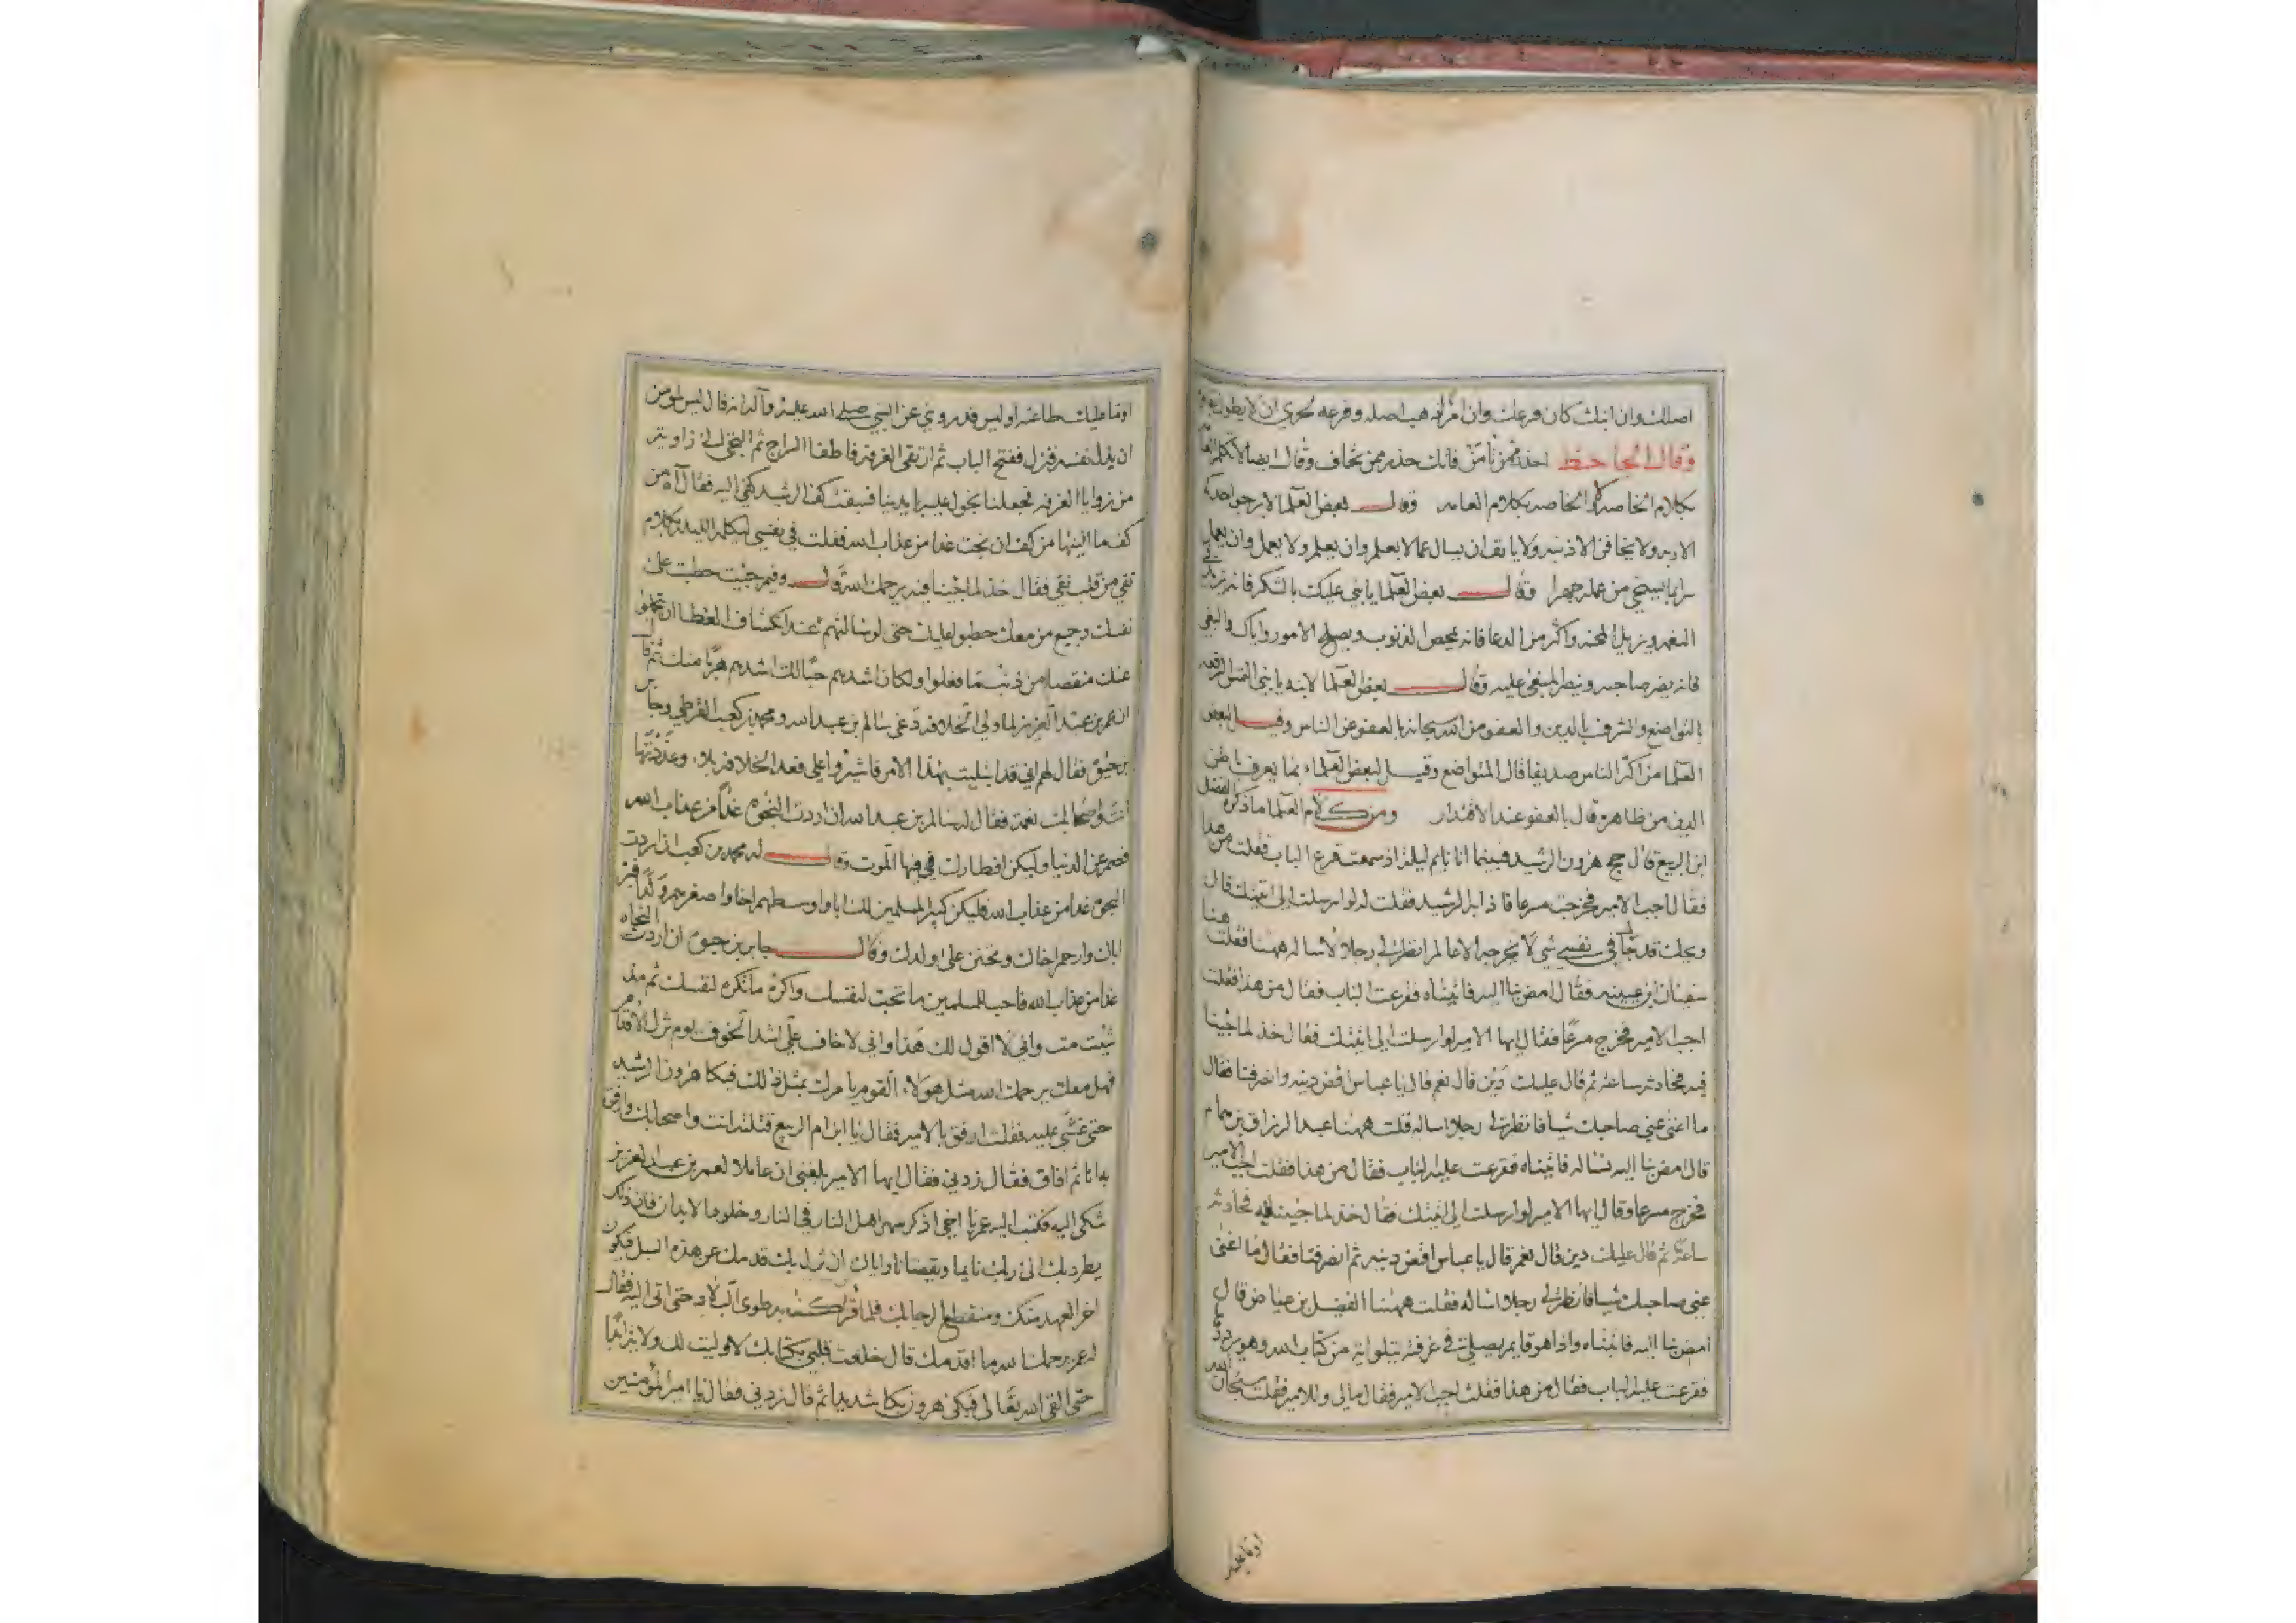 اصلك وان ابنك كان فرعك وان امرأ هب اصله وفرعه لحري ان لا يطول
وقال الجاحظ احذر ممن تأمن فانك حذر ممن تخاف وقال ايضا لا تكلم
بكلام الخاصة ولا الخاصه بكلام العامه وقال بعض العلما لا يرجو احدكم
الا ربه ولا يخافن الا ذنبه ولا يانف ان يسال عما لا يعلم وان يعلم ولا يعمل وان يعمل
سرا ما يستحي من عمله جهرا وقال بعض العلما يا بني عليك بالشكر فانه يزيد في
النعم ويزيل المحنه واكثر من الدعا فانه يمحص الذنوب ويصلح الامور واياك والبغي
فانه يضر صاحبه وينصر المبغي عليه وقال بعض العلما لابنه يا بني التمس الرفعه
بالتواضع والشرف بالدين والعفو من الله سبحانه بالعفو عن الناس وقيل لبعض
العلما من اكثر الناس صديقا قال المتواضع وقيل لبعض العلماء بما يعرف باطن
الدين من ظاهره قال بالعفو عند الاقتدار ومن كلام العلما ما ذكره الفضل
ابن الربيع قال حج هرون الرشيد فبينما انا نايم ليلة اذ سمعت قرع الباب فقلت من هذا
فقال اجب الامير فخرجت مسرعا فاذا بالرشيد فقلت له لو ارسلت الي اتيتك قال
ويحك قد جا في نفسي شي لا يخرجه الا عالم انظر لي رجلا لأساله ههنا فقلت هنا
سفيان ابن عيينه فقال امض بنا اليه فاتيناه فقرعت الباب فقال من هذا فقلت
اجب الامير فخرج مسرعًا فقال ايها الامير لو ارسلت الي اتيتك فقال خذ لما جئنا
فيه فحادثه ساعة ثم قال عليك دَين قال نعم قال يا عباس اقض دينه وانصرفنا فقال
ما اغنى عني صاحبك شيا فانظر لي رجلا اساله قلت ههنا عبد الرزاق بن همام
قال امض بنا اليه نساله فاتيناه فقرعت عليه الباب فقال من هذا فقلت اجب الامير
فخرج مسرعا وقال ايها الامير لو ارسلت الي اتيتك فقال خذ لما جيئت له فحادثه
ساعةً ثم قال عليك دين قال نعم قال يا عباس اقض دينه ثم انصرفنا فقال ما اغنى
عني صاحبك شيا فانظر لي رجلا اساله فقلت ههنا الفضيل بن عياض قال
امض بنا اليه فاتيناه واذا هو قايم يصلي في غرفة يتلو اية من كتاب الله وهو يرددها
فقرعت عليه الباب فقال من هذا فقلت اجب الامير فقال مالي وللامير فقلت سبحان الله
اوما عليك
اوما عليك طاعته اوليس قد روي عن النبي صلى الله عليه وآله انه قال ليس لمومن
ان يذل نفسه فنزل ففتح الباب ثم ارتقى الغرفة فاطفا السراج ثم التجى الى زاوية
من زوايا الغرفة فجعلنا نجول عليه بايدينا فسبقت كف الرشيد كفي اليه فقال آه من
كف ما الينها من كف ان نجت غدا من عذاب الله فقلت في نفسي ليكلمه الليلة بكلام
نقي من قلب نقي فقال خذ لما جئنا فيه يرحمك الله قال وفيم جيت حطت على
نفسك وجميع من معك حطبوا عليك حتى لو سالتهم عند انكشاف الغطا ان يتحملوا
عنك منقصا من ذنب ما فعلوا ولكان اشدهم حبًا لك اشدهم هربًا منك ثم قال
ان عمر بن عبد العزيز لما ولي الخلافه دعى سالم بن عبد الله ومحمد بن كعب القرظي وجابر
بن حيوة فقال لهم اني قد ابتليت بهذا الامر فاشيروا علي فعد الخلافة بلاء وعددتها
انت واصحابك نعمة فقال له سالم بن عبد الله ان اردت النجوة غدًا من عذاب الله
فصم عن الدنيا وليكن افطارك في فيها الموت وقال له محمد بن كعب ان اردت
النجوة غدا من عذاب الله فليكن كبير المسلمين لك ابا واوسطهم اخا واصغرهم ولدًا فبر
اباك وارحم اخاك وتحنن على اولدك وقال جابر بن حيوة ان اردت النجاه
غدا من عذاب الله فاحب للمسلمين ما تحب لنفسك واكره ما تكره لنفسك ثم متى
شئت مت واني لا اقول لك هذا واني لاخاف عليك اشد الخوف يوم تزل الاقدام
فهل معك يرحمك الله مثل هولاء القوم يا مرك بمثل ذلك فبكا هرون الرشيد
حتى غشي عليه فقلت ارفق بالامير فقال يا ابن ام الربيع قتلته انت واصحابك وارفق
به انا ثم افاق فقال زدني فقال ايها الامير بلغني ان عاملا لعمر بن عبد العزيز
شكى اليه فكتب اليه عمر يا اخي اذكر سهر اهل النار في النار وخلود الابدان فان ذلك
يطرد بك الى ربك نايما ويقضانا واياك ان تزل بك قدمك عن هذه السبل فيكون
اخر العهد منك ومنقطع الرجا بك فلما قرأ كتابه طوى البلاد حتى اتى اليه فقال
له عمر يرحمك الله ما اقدمك قال خلعت قلبي بكتابك لا وليت لك ولاية ابدًا
حتى القى الله تعالى فبكى هرون بكا شديدا ثم قال زدني فقال يا امير المؤمنين